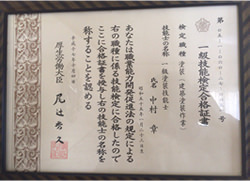 一級技能検定合格証書
検定職種 塗装(建築塗装作業)
技能士の名称 一級塗装技能士
氏名 中村 章
あなたは職業能力開発促進法の規定による
右の職種に係る技能検定に合格したので
ここに合格証書を授与し右の技能士の名称を
称することを認める
厚生労働大臣
尾辻秀久